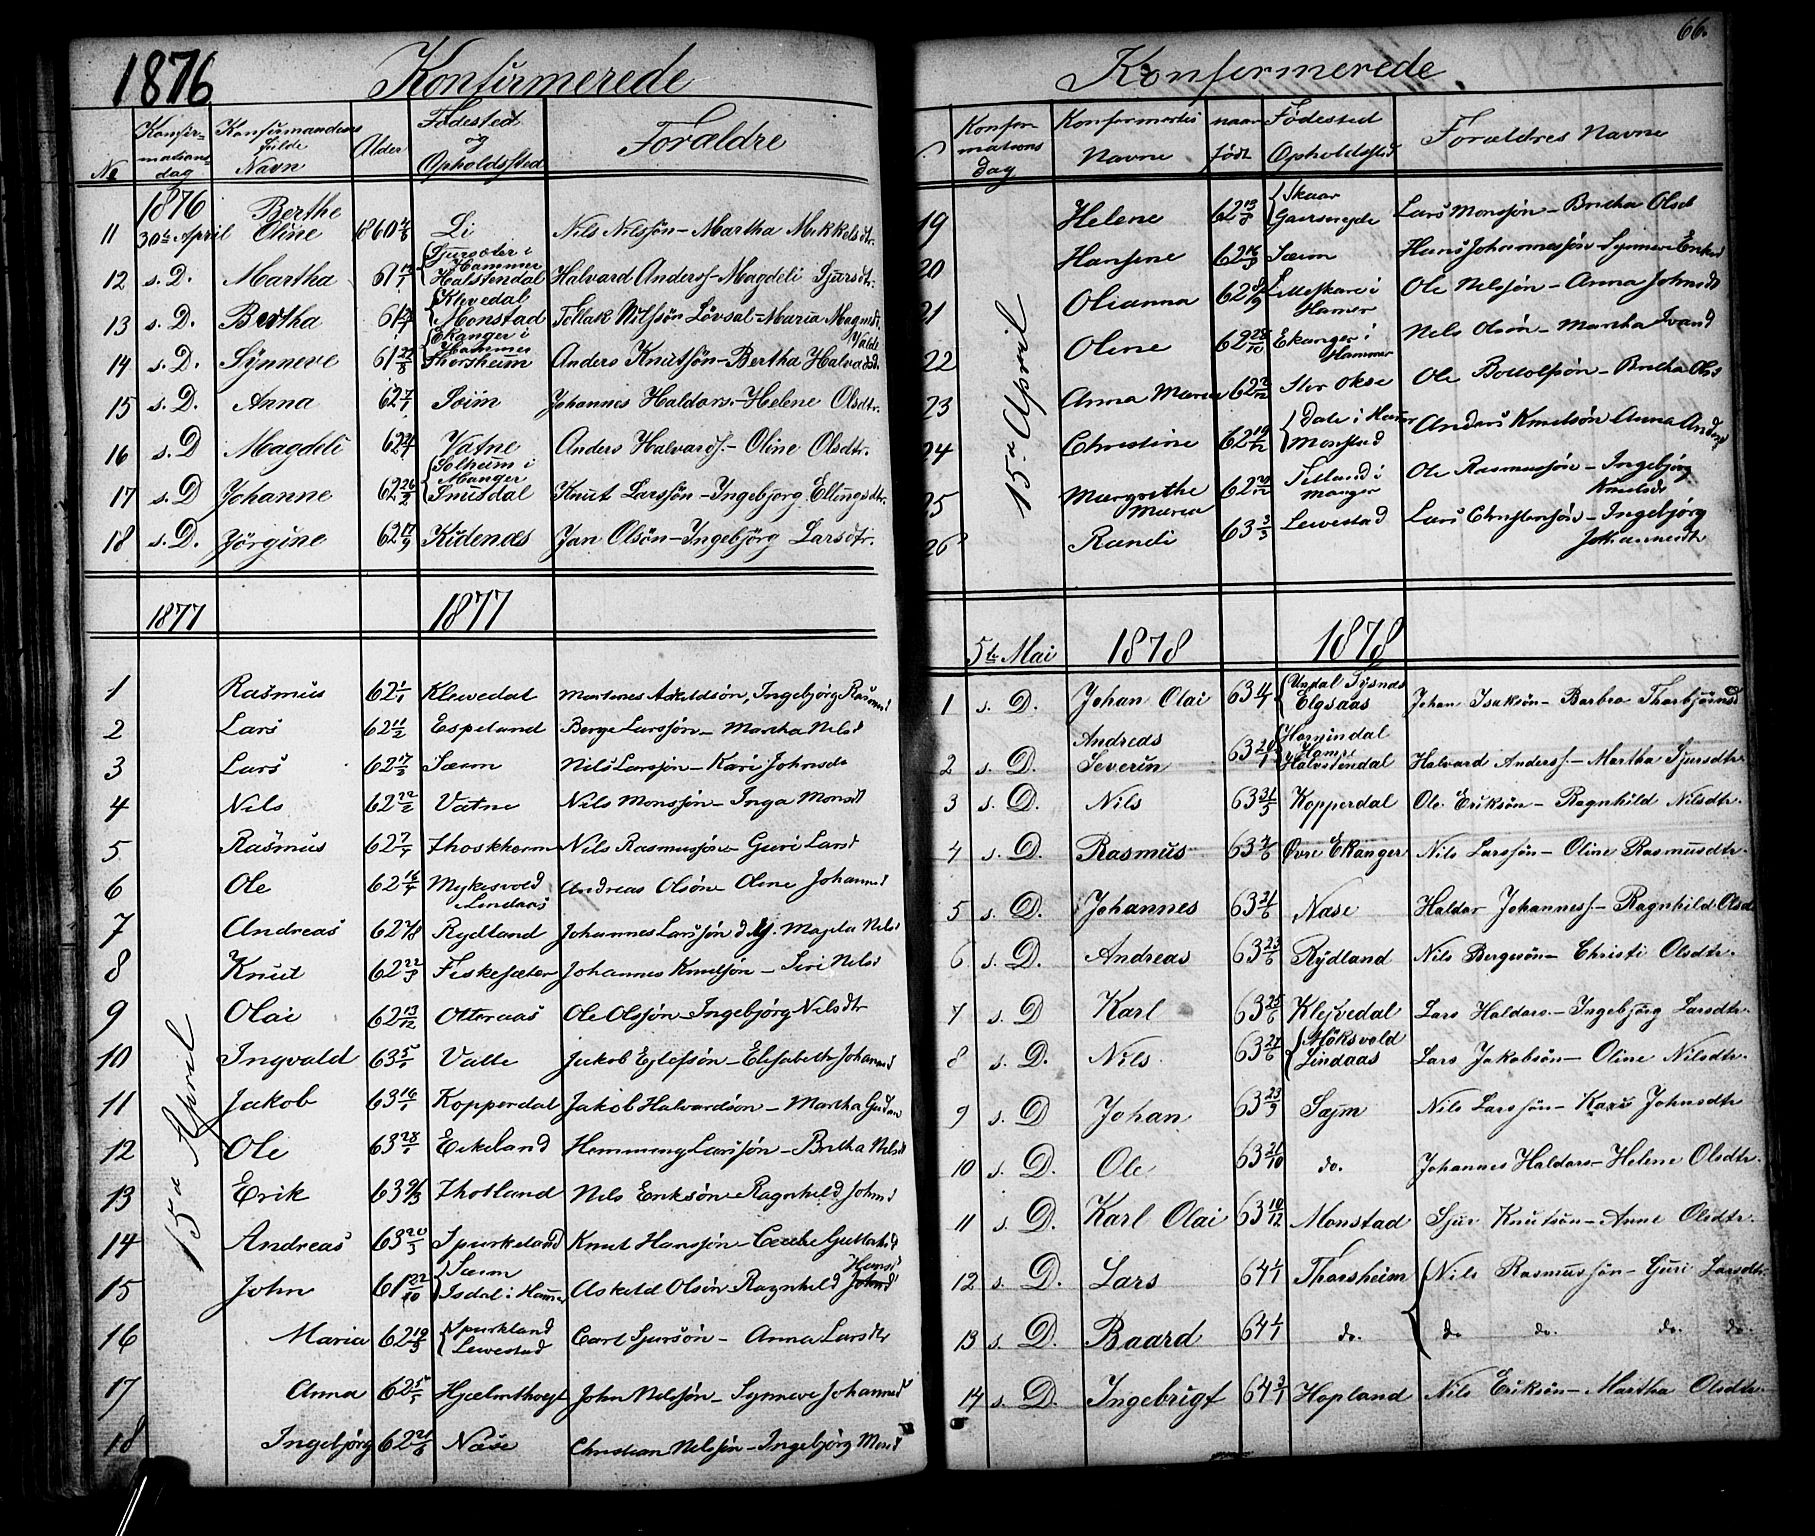 1876 Konfirmerede
No Konfirmationsdag Konfirmandens fulde Navn Alder Fødested og Opholdssted Forældre
1876 Berthe
11 30te April Oline 1860 Li Nils Nilsøn - Martha Mikkelsdtr.
12 s. D. Martha 61 Hammer Halstendal Halvard Anders. - Magdeli Sjursdtr.
13 s. D. Bertha 61 Klevedal Monstad Tollak Nilsøn Løvsal - Maria Magnd.
14 s. D. Synneve 61 22/8 Ekanger i Hammer Thorsheim Anders Knutsøn - Bertha Halvardsd.
15 s. D. Anna 62 7/1 Soim Johannes Haldors. - Helene Olsdtr.
16 s. D Magdeli 62 Vatne Anders Halvards. - Oline Olsdtr.
17 s. D Johanne 62 26/2 Solheim i Manger Tnusdal Knut Larssøn - Ingebjorg Ellingsdtr.
18 s. D. Jørgine 62 17/9 Kidenæs Jan Olsøn - Ingebjørg Larsdtr.
1877 1877
15de April
1 Rasmus 62 1/1 Klewedal Martines Askeldsøn, Ingebjørg Rasmusd
2 Lars 62 11/2 Espeland Berge Larssøn - Martha Nilsd
3 Lars 62 17/2 Sæim Nils Larssøn - Kari Johnsdr
4 Nils 62 22/2 Vatne Nils Monssøn - Inga Monsd
5 Rasmus 62 Thoskheim Nils Rasmussøn - Guri Larsd
6 Ole 62 16/4 Mykesvold Lindaas Andreas Olsøn - Oline Johannesd
7 Andreas 62 7/8 Rydland Johannes Larssøn d.y. Magela Nilsd
8 Knut 62 22/9 Fiskesæter Johannes Knutsøn - Siri Nilsd
9 Olai 62 13/12 Otteraas Ole Olssøn - Ingebjørg Nilsdtr
10 Ingvald 63 5/1 Valle Jakob Ejlefsøn - Elisabeth Johannesd
11 Jakob 63 16/1 Kopperdal Jakob Halvardsøn - Martha Gudm
12 Ole 63 28/1 Eikeland Hemming Larssøn - Britha Nilsd
13 Erik 63 Thotland Nils Eriksøn - Ragnhild Johnsd
14 Andreas 63 20/3 Spurkeland Knut Hanssøn - Cecelie Guttormsd
15 John 61 22/10 Sæim Isdal i Hammer Askeld Olsøn Ragnhild Hansd
16 Maria 62 19/3 Spurkland Lewestad Carl Sjursøn - Anna Larsdtr
17 Anna 62 5/5 Hjælmthveyt John Nilssøn - Synneve Johannesd
18 Ingebjørg 62 21/6 Nåse Christian Nilssøn - Ingebjørg Monsd
66.
Konfirmerede
Konfirmations dag Konfirmertes Navne naar født Fødested Opholdssted Forældres Navne
15de April
19 Helene 62 13/8 Skaar Gaasmyde Lars Monssøn - Britha Olsd
20 Hansine 62 16/9 Sæim Hans Johannessøn Synneve Eriksd
21 Olianna 62 8/9 Litleskare i Hamer Ole Nilssøn - Anna Johnsd
22 Oline 62 28/10 Ekanger i Hammer Nils Olsøn - Martha Ivarsd
23 Anna Maria 62 Stor Okse Ole Bottolfsøn - Britha Olsd
24 Christine 62 19/12 Dale i Hamer Monstad Anders Knutsøn Anna Andersd
25 Margrethe Maria 62 Titland i Manger Ole Rasmussøn - Ingebjørg Knutsdr
26 Randi 63 3/3 Lewestad Lars Christensøn - Ingebjørg Johannesdtr
5te Mai 1878 1878
1 s. D. Johan Olai 63 1/4 Undal Tysnæs Elgsaas Johan Isaksøn - Barbro Thorbjørnsd
2 s. D. Andreas Severin 63 Hamre Halvstendal Halvard Anders. - Martha Sjursdtr
3 s. D. Nils 63 31/5 Kopperdal Ole Eriksøn - Ragnhild Nilsdtr.
4 s. D. Rasmus 63 2/6 Øvre Ekanger Nils Larssøn - Oline Rasmusdtr.
5 s. D. Johannes 63 21/6 Nåse Haldor Johanness. - Ragnhild Olsd
6 s. D. Andreas 63 23/6 Rydland Nils Bergesøn - Christi Olsdtr.
7 s. D Karl 63 25/6 Klejvedal Lars Haldors. - Ingebjørg Larsdtr.
8 s. D. Nils 63 27/6 Möksvold Lindaas Lars Jakobsøn - Oline Nilsdtr.
9 s. D Johan 63 23/9 Sæjm Nils Larssøn - Kari Johnsdtr
10 s. D. Ole 63 21/10 do. Johannes Haldors - Helene Olsdtr.
11 s. D. Karl Olai 63 10/12 Monstad Sjur Knutsøn - Anne Olsdtr.
12 s. D. Lars 64 1/1 Thorsheim Nils Rasmussøn - Guri Larsdtr
13 s. D. Baard 64 1/1 do. do do. do. do.
14 s. D. Ingebrigt 64 3/1 Hopland Nils Eriksøn - Martha Olsdtr.